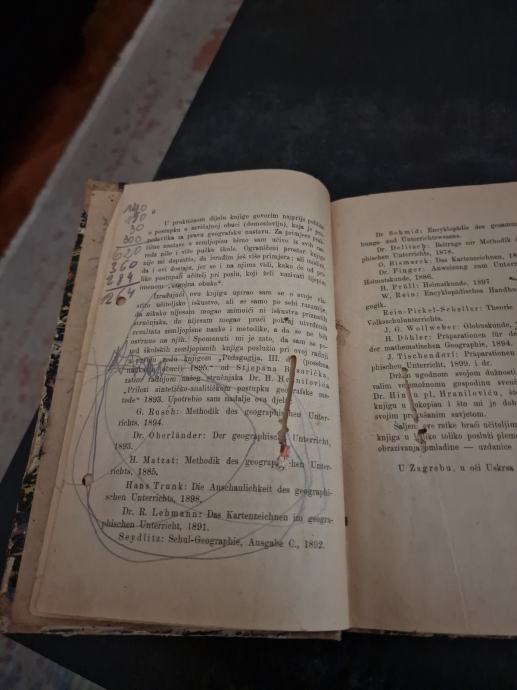 140
150
30
300
620
360
284
U praktičnom dijelu knjige govorim najprije
o postupku u zavičajnoj obuci (domoslovlju), koja je
podevtka za pravu geografsku nastavu. Za primjere
tične nastave u zemljopisu birao sam učivo iz svih
reda niže i više pučke škole. Ograničeni prostor knjige
nije mi dopustio, da izradim još više primjera; ali mislim,
da i ovi dostaju, jer se i na njima vidi, kako će od pri-
like postupati učitelj pri poslu, koji želi nazivati lijepim
imenom „uzgojna obuka".
Izrađujući ovu knjigu upirao sam se o svoje vla-
stito učiteljsko iskustvo, ali se samo po sebi razumije,
da nikako nijesam mogao mimoići ni iskustva priznatih
stručnjaka, niti nijesam mogao proći pokraj utvrđenih
rezultata zemljopisne nauke i metodike, a da se ne bih
osvrnuo na njih. Spomenuti mi je zato, da sam se po-
red školskih zemljopisnih knjiga poslužio pri ovoj radnji
knjigom „Pedagogija, III. dio (posebna
1895." od Stjepana Basaričeka,
zatim radnjom našeg stručnjaka Dr. H. Hranilovića
„Prilozi sintetičko-analitičkom postupku geografske me-
tode" 1893. Upotrebio sam nadalje ova djela:
G. Rusch: Methodik des geographischen Unter-
richts, 1894.
Dr. Oberländer: Der geographische Unterricht,
1893.
H. Matzat: Methodik des geographischen Unter-
richts, 1885.
Hans Trunk: Die Anschaulichkeit des geographi-
schen Unterrichts, 1898.
Dr. R. Lehmann: Das Kartenzeichnen im geogra-
phischen Unterricht, 1891.
Seydlitz: Schul-Geographie, Ausgabe C., 1892.
Dr Schmid: Encyklopädie des gesamm
hungs- und Unterrichtswesens.
Dr. Delitsch: Beiträge zur Methodik
phischen Unterrichts, 1878.
O. Bismarck: Das Kartenzeichnen,
Dr. Finger: Anweisung zum Unter
Heimatskunde, 1886.
H. Pröll: Heimatkunde, 1897
W. Rein: Encyklopädisches Handbu
gogik.
Rein-Pickel-Scheller: Theorie
Volksschulunterrichts.
J. G. Wollweber: Globuskunde,
H. Döhler: Präparationen für de
der mathematischen Geographie, 1894.
J. Tischendorf: Präparationen
phischen Unterricht, 1899. i dr.
Držim ugodnom svojom dužnosti
valim velemožnomu gospodinu sveuč
Dr. Hinku pl. Hraniloviću, što
knjigu u rukopisu i što mi je dob
svojim prijateljskim savjetom.
Šaljem sve retke braći učiteljim
knjiga u toliko posluži pleme
obrazivanja omladine — uzdanice
U Zagrebu, u oči Uskrsa